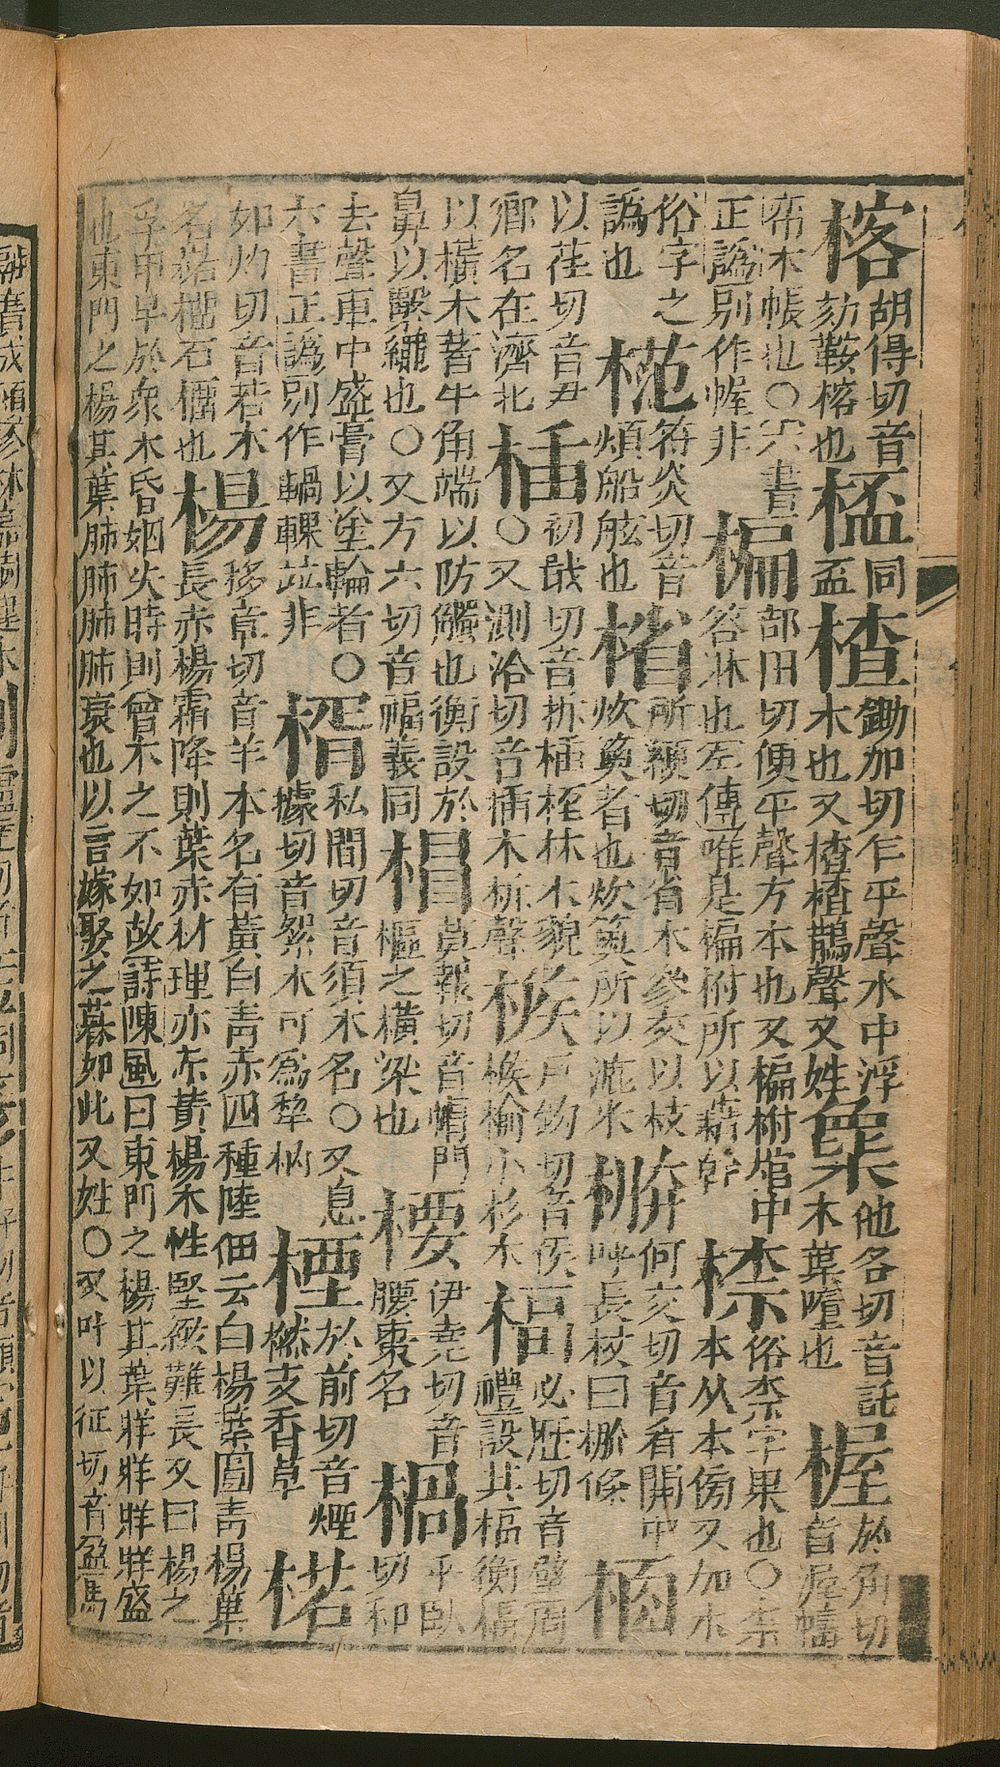 楁胡得切音劾鞍楁也 同盃楂鋤加切乍平聲水中浮木也又楂楂鵲聲又姓 他各切音託木葉墮也楃於角切音屋幬
帟木帳也〇六書正譌別作幄非楄部田切便平聲方木也又楄柎棺中笭牀也左傳唯是楄柎所以藉幹㮏俗柰字果也〇柰本从木傍又加木
俗字之譌也 符炎切音煩船舷也㮐所綆切音省木參交以枝炊䉛者也炊䉛所以漉米 何交切音肴開中呼長杖曰 條
以荏切音尹鄉名在濟北 初戢切音 〇又測洽切音插木㭊聲㮢戶鉤切音侯㮢楡小杉木楅必歷切音壁周禮設其楅衡楅
以橫木著牛角端以防觸也衡設於鼻以繫繩也〇又方六切音福義同㮘莫報切音帽門樞之橫梁也楆伊堯切音腰棗名楇平臥切和
去聲車中盛膏以塗輪者〇六書正譌別作 輠竝非楈私閭切音須木名〇又息據切音絮木可爲犂柄 於前切音煙橪支香草楉
如灼切音若木名楉榴石榴也楊移章切音羊木名有黃白靑赤四種陸佃云白楊葉圓靑楊葉長赤楊霜降則葉赤材理亦赤黃楊木性堅緻難長又曰楊之
孚甲早於衆木昏姻失時則曾木之不如故詩陳風曰東門之楊其葉牂牂牂牂盛也東門之楊其葉肺肺肺肺衰也以言嫁娶之暮如此又姓〇又叶以征切音盈馬